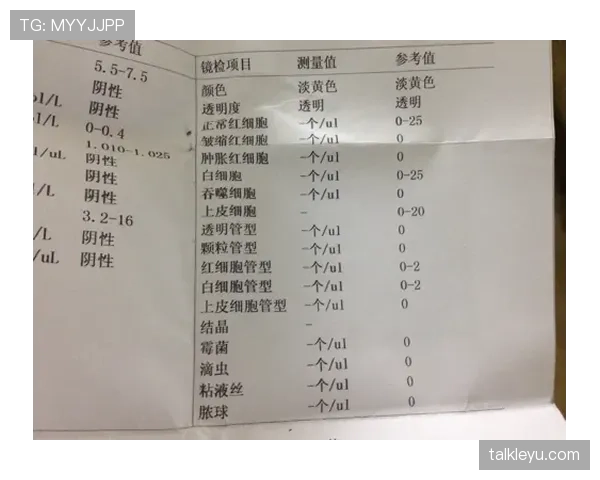 TG: MYYJJPP
参考值
5.5-7.5
阴性
阴性
0-0.4
1.010-1.025
阴性
阴性
阴性
3.2-16
阴性
阴性
/L
/L
/uL
/L
/L
/uL
镜检项目 测量值 参考值
颜色 淡黄色 淡黄色
透明度 透明 透明
正常红细胞 -个/ul 0-25
皱缩红细胞 -个/ul 0
肿胀红细胞 -个/ul 0
白细胞 -个/ul 0-25
吞噬细胞 -个/ul 0
上皮细胞 - 0-20
透明管型 -个/ul 0
颗粒管型 -个/ul 0
红细胞管型 -个/ul 0-2
白细胞管型 -个/ul 0-2
上皮细胞管型 -个/ul 0
结晶 -
霉菌 -个/ul 0
滴虫 -个/ul 0
粘液丝 -个/ul 0
脓球 -个/ul 0
talkleyu.com